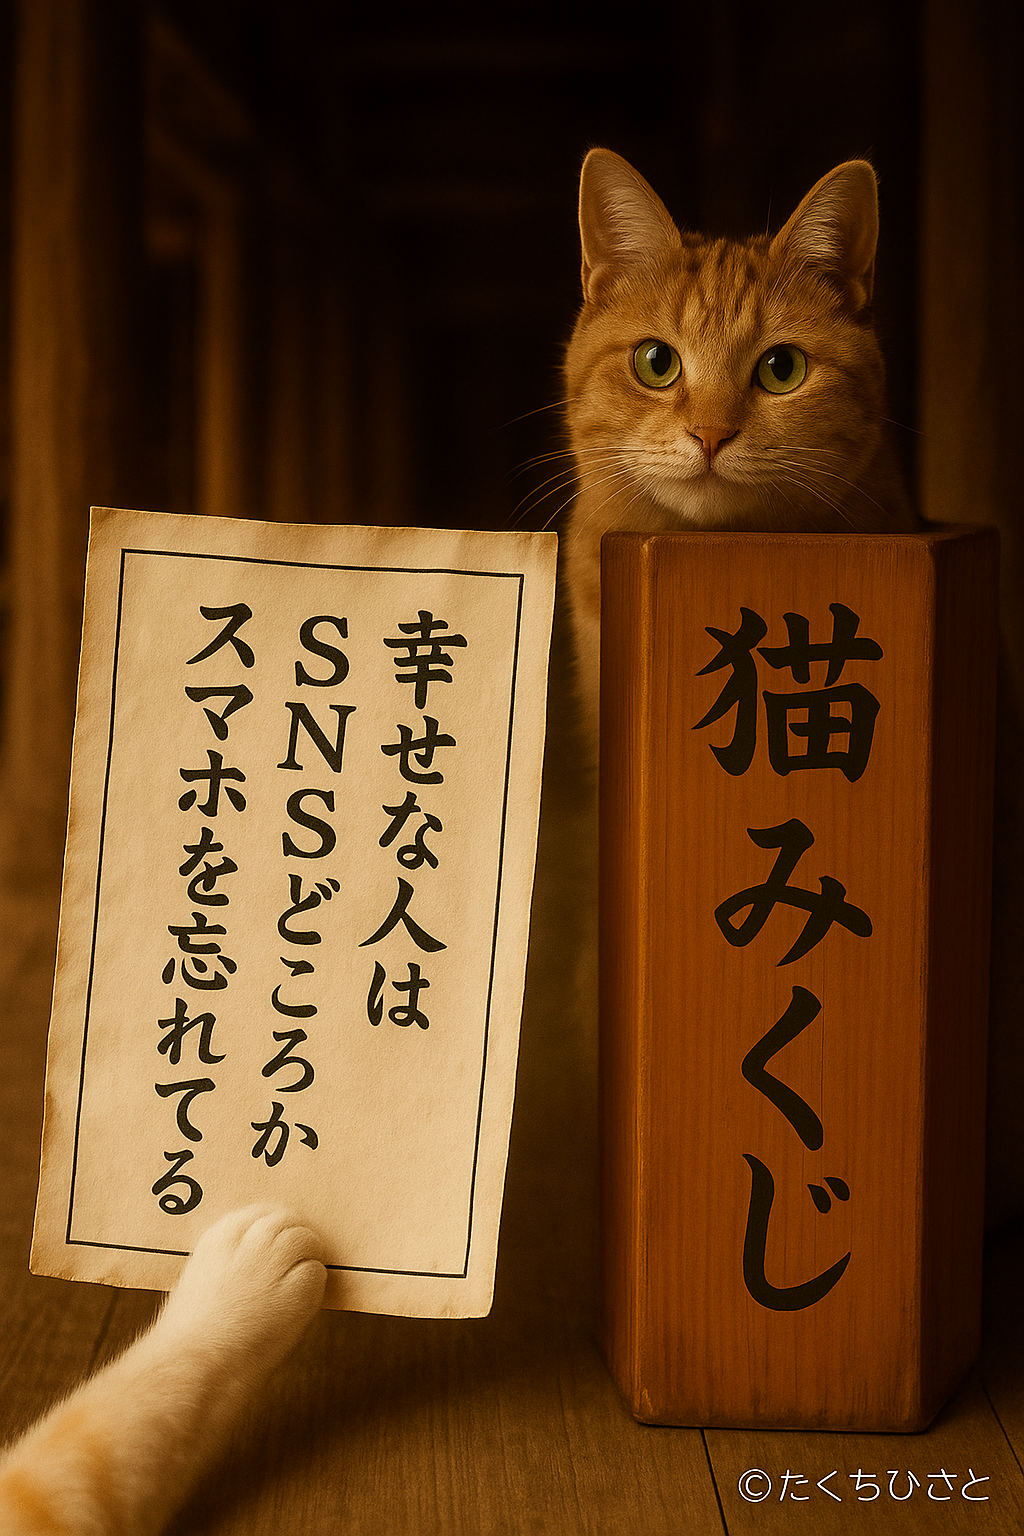 猫みくじ
幸せな人は
SNSどころか
スマホを忘れてる
©たくちひさと